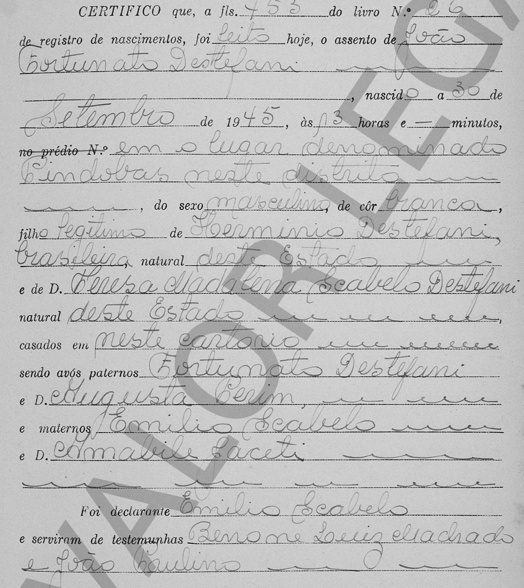 CERTIFICO que, a fls. 453 do livro N.º 26
de registro de nascimentos, foi feito hoje, o assento de João
Fortunato Destefani
, nascido a 30 de
Setembro de 1945, às 13 horas e — minutos,
no prédio N.º em o lugar denominado
Pindobas neste distrito
, do sexo masculino, de côr branca,
filho legitimo de Herminio Destefani,
brasileiro, natural deste Estado
e de D. Tereza Madalena Scabelo Destefani
natural deste Estado
casados em neste cartorio
sendo avós paternos Fortunato Destefani
e D. Augusta Perin,
e maternos Emilio Scabelo
e D. Amabile
Foi declarante Emilio Scabelo
e serviram de testemunhas Benone Luiz Machado
e João Paulino
VALOR LEGA